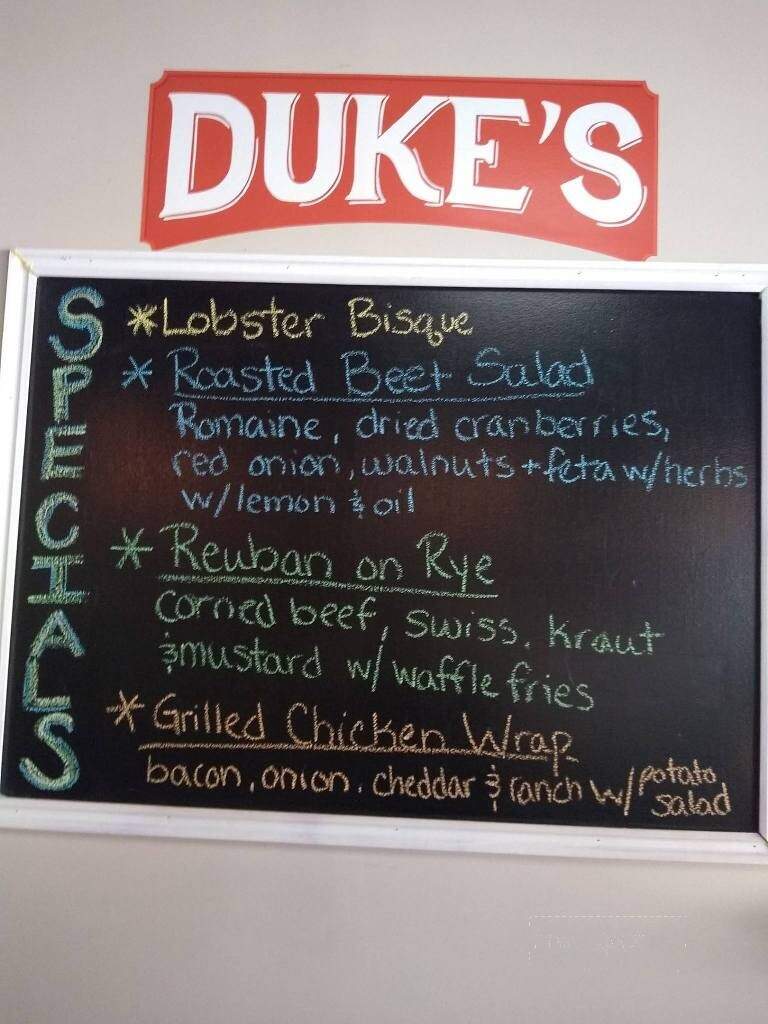 DUKE'S
SPECIALS
*Lobster Bisque
* Roasted Beet Salad
Romaine, dried cranberries,
red onion, walnuts + feta w/herbs
w/lemon & oil
* Reuban on Rye
corned beef, swiss, kraut
&mustard w/ waffle fries
* Grilled Chicken Wrap
bacon, onion, cheddar & ranch w/ potato salad